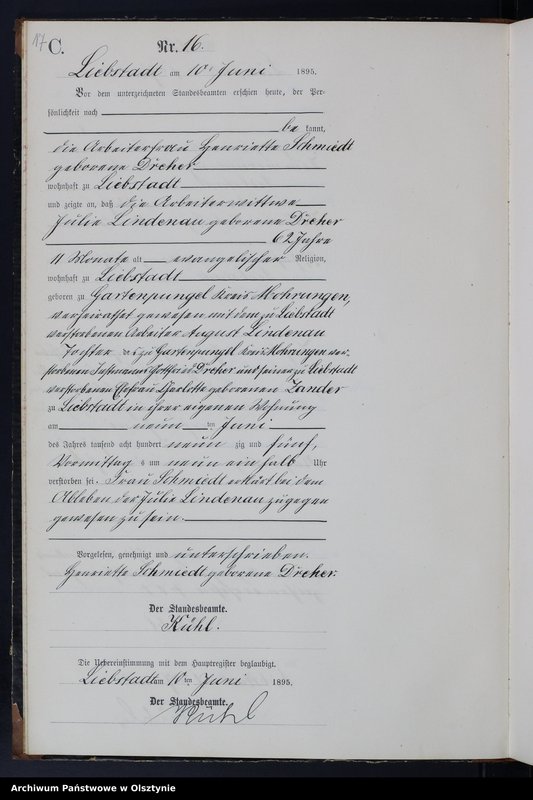 17
C.
Nr. 16.
Liebstadt am 10. Juni 1895.
Vor dem unterzeichneten Standesbeamten erschien heute, der Per-
sönlichkeit nach
be kannt,
die Arbeiterfrau Henriette Schmiedt
geborene Dreher
wohnhaft zu Liebstadt
und zeigte an, daß die Arbeiterwittwe
Julie Lindenau geborene Dreher
62 Jahre
11 Monate alt evangelischer Religion,
wohnhaft zu Liebstadt
geboren zu Gartenpungel Kreis Mohrungen,
verheirathet gewesen mit dem zu Liebstadt
verstorbenen Arbeiter August Lindenau
Tochter des zu Gartenpungel Kreis Mohrungen ver-
storbenen Instmanns Gottfried Dreher und seiner zu Liebstadt
verstorbenen Ehefrau Charlotte geborenen Zander
zu Liebstadt in ihrer eigenen Wohnung
am neun ten Juni
des Jahres tausend acht hundert neun zig und fünf,
Vormittag s um neun ein halb Uhr
verstorben sei. Frau Schmiedt erklärt bei dem
Ableben der Julie Lindenau zugegen
gewesen zu sein.
Vorgelesen, genehmigt und unterschrieben.
Henriette Schmiedt geborene Dreher.
Der Standesbeamte.
Kühl.
Die Uebereinstimmung mit dem Hauptregister beglaubigt.
Liebstadt am 10ten Juni 1895.
Der Standesbeamte.
Kühl
Archiwum Państwowe w Olsztynie